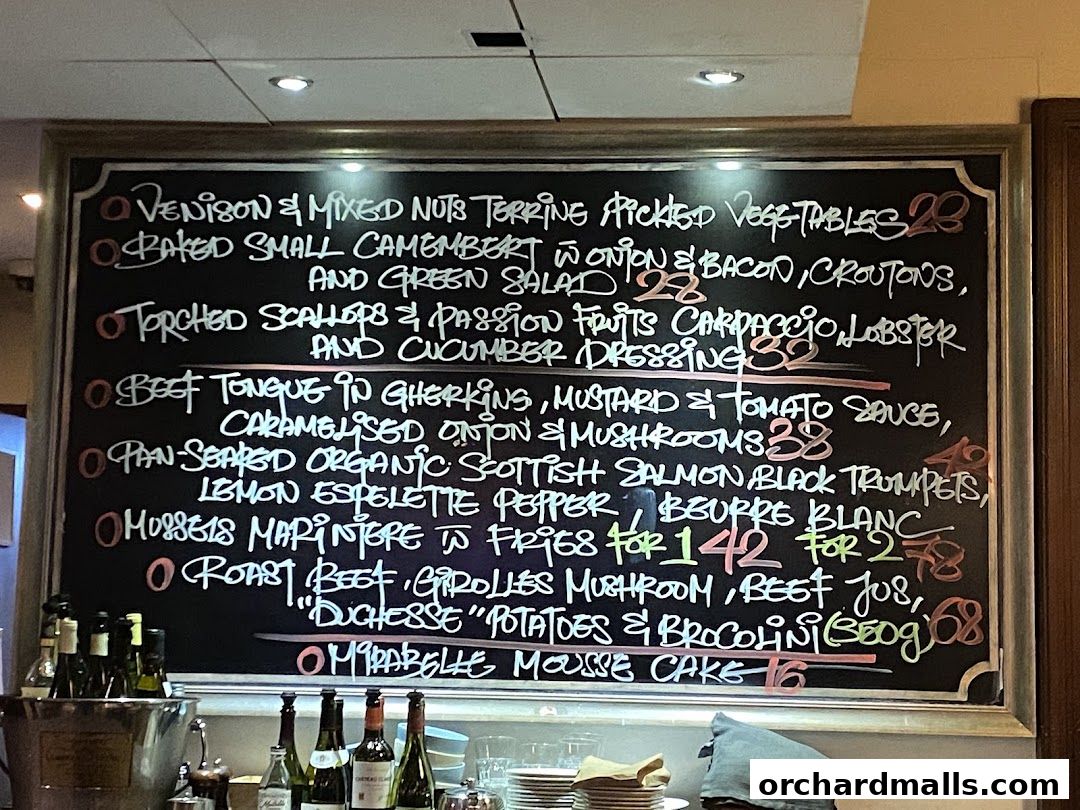 VENISON & MIXED NUTS TERRINE, PICKLED VEGETABLES 28
BAKED SMALL CAMEMBERT w ONION & BACON, CROUTONS,
AND GREEN SALAD 28
TORCHED SCALLOPS & PASSION FRUITS CARPACCIO, LOBSTER
AND CUCUMBER DRESSING 32
BEEF TONGUE IN GHERKING, MUSTARD & TOMATO SAUCE,
CARAMELISED ONION & MUSHROOMS 38
PAN-SEARED ORGANIC SCOTTISH SALMON, BLACK TRUMPETS,
LEMON ESPELETTE PEPPER, BEURRE BLANC
MUSSELS MARINIERE w FRIES FOR 1 42 FOR 2 78
ROAST BEEF, GIROLLES MUSHROOM, BEEF JUS,
"DUCHESSE" POTATOES & BROCOLINI 68
MIRABELLE MOUSSE CAKE 16
orchardmalls.com